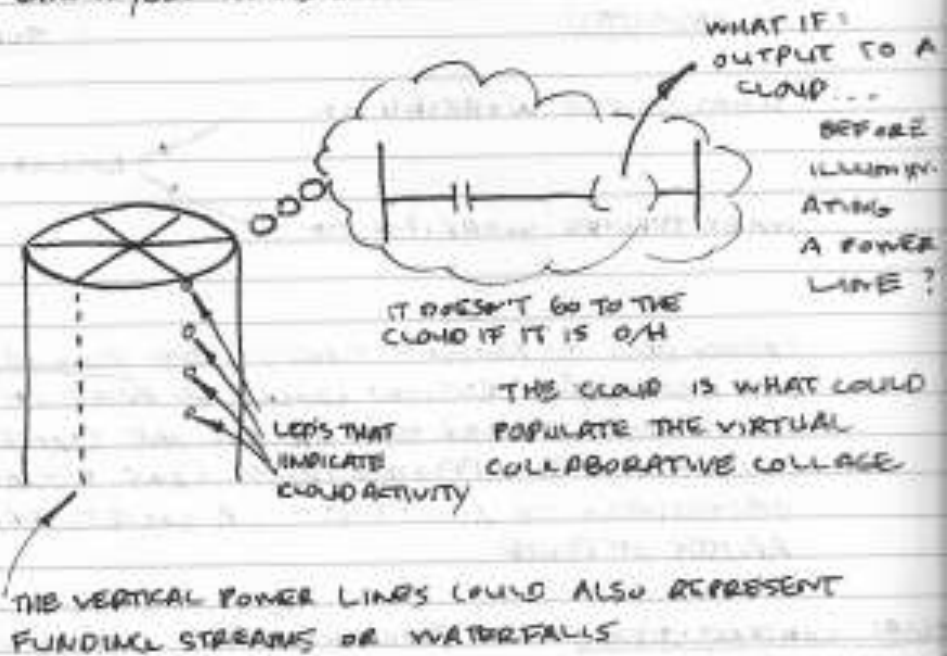 WHAT IF:
OUTPUT TO A
CLOUD...
BEFORE
ILLUMIN-
ATING
A POWER
LINE?
IT DOESN'T GO TO THE
CLOUD IF IT IS O/H
THE CLOUD IS WHAT COULD
POPULATE THE VIRTUAL
COLLABORATIVE COLLAGE
LED'S THAT
INDICATE
CLOUD ACTIVITY
THE VERTICAL POWER LINES COULD ALSO REPRESENT
FUNDING STREAMS OR WATERFALLS